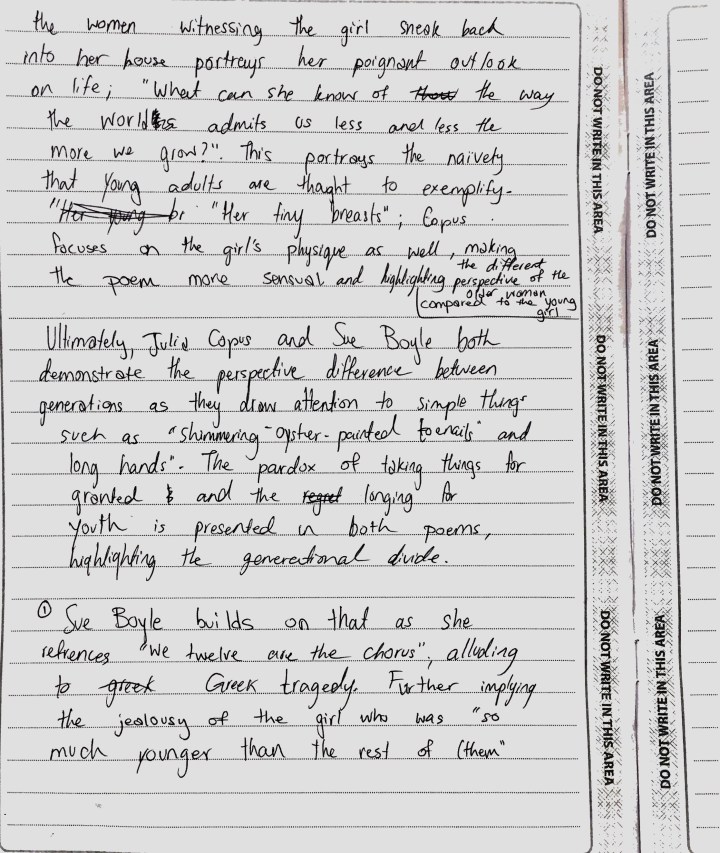 the women witnessing the girl sneak back
into her house portrays her poignant outlook
on life; "What can she know of the way
the world admits us less and less the
more we grow?". This portrays the naivety
that young adults are thaght to exemplify.
"Her tiny breasts"; Copus
focuses on the girl's physique as well, making
the poem more sensual and highlighting the different
perspective of the
older woman
compared to the young
girl
Ultimately, Julia Copus and Sue Boyle both
demonstrate the perspective difference between
generations as they draw attention to simple things
such as "shimmering-oyster-painted toenails" and
long hands". The pardox of taking things for
granted and the longing for
youth is presented in both poems,
highlighting the generational divide.
① Sue Boyle builds on that as she
refrences "we twelve are the chorus", alluding
to Greek tragedy. Further implying
the jealousy of the girl who was "so
much younger than the rest of (them"
DO NOT WRITE IN THIS AREA
DO NOT WRITE IN THIS AREA
DO NOT WRITE IN THIS AREA
DO NOT WRITE IN THIS AREA
DO NOT WRITE IN THIS AREA
DO NOT WRITE IN THIS AREA